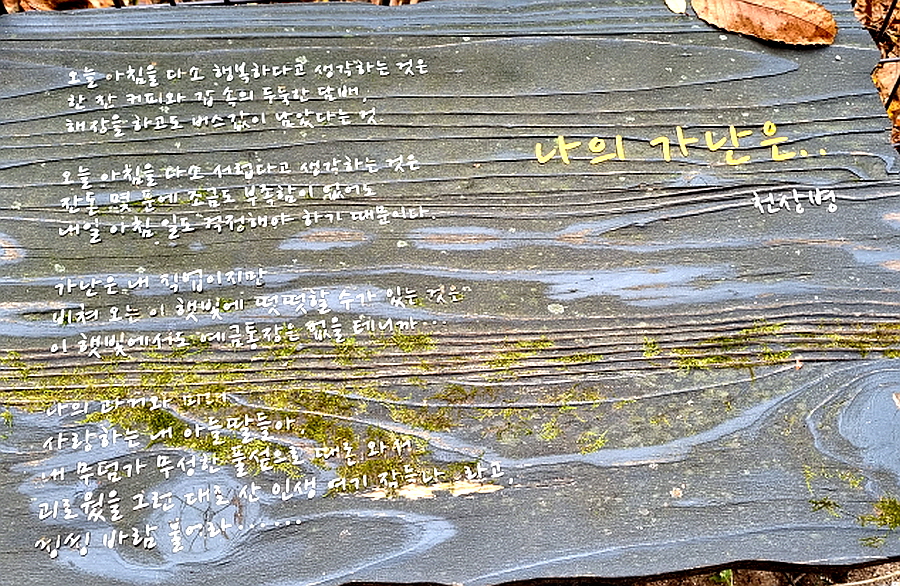 나의 가난은..
천상병
오늘 아침을 다소 행복하다고 생각하는 것은
한 잔 커피와 갑 속의 두둑한 담배,
해장을 하고도 버스값이 남았다는 것.
오늘 아침을 다소 서럽다고 생각하는 것은
잔돈 몇 푼에 조금도 부족함이 없어도
내일 아침 일도 걱정해야 하기 때문이다.
가난은 내 직업이지만
비쳐 오는 이 햇빛에 떳떳할 수가 있는 것은
이 햇빛에서도 예금통장은 없을 테니까…
나의 과거와 미래
사랑하는 내 아들딸들아,
내 무덤가 무성한 풀섶으로 때론 와서
괴로웠을 그런 대로 산 인생 여기 잠들다. 라고,
씽씽 바람 불어라……